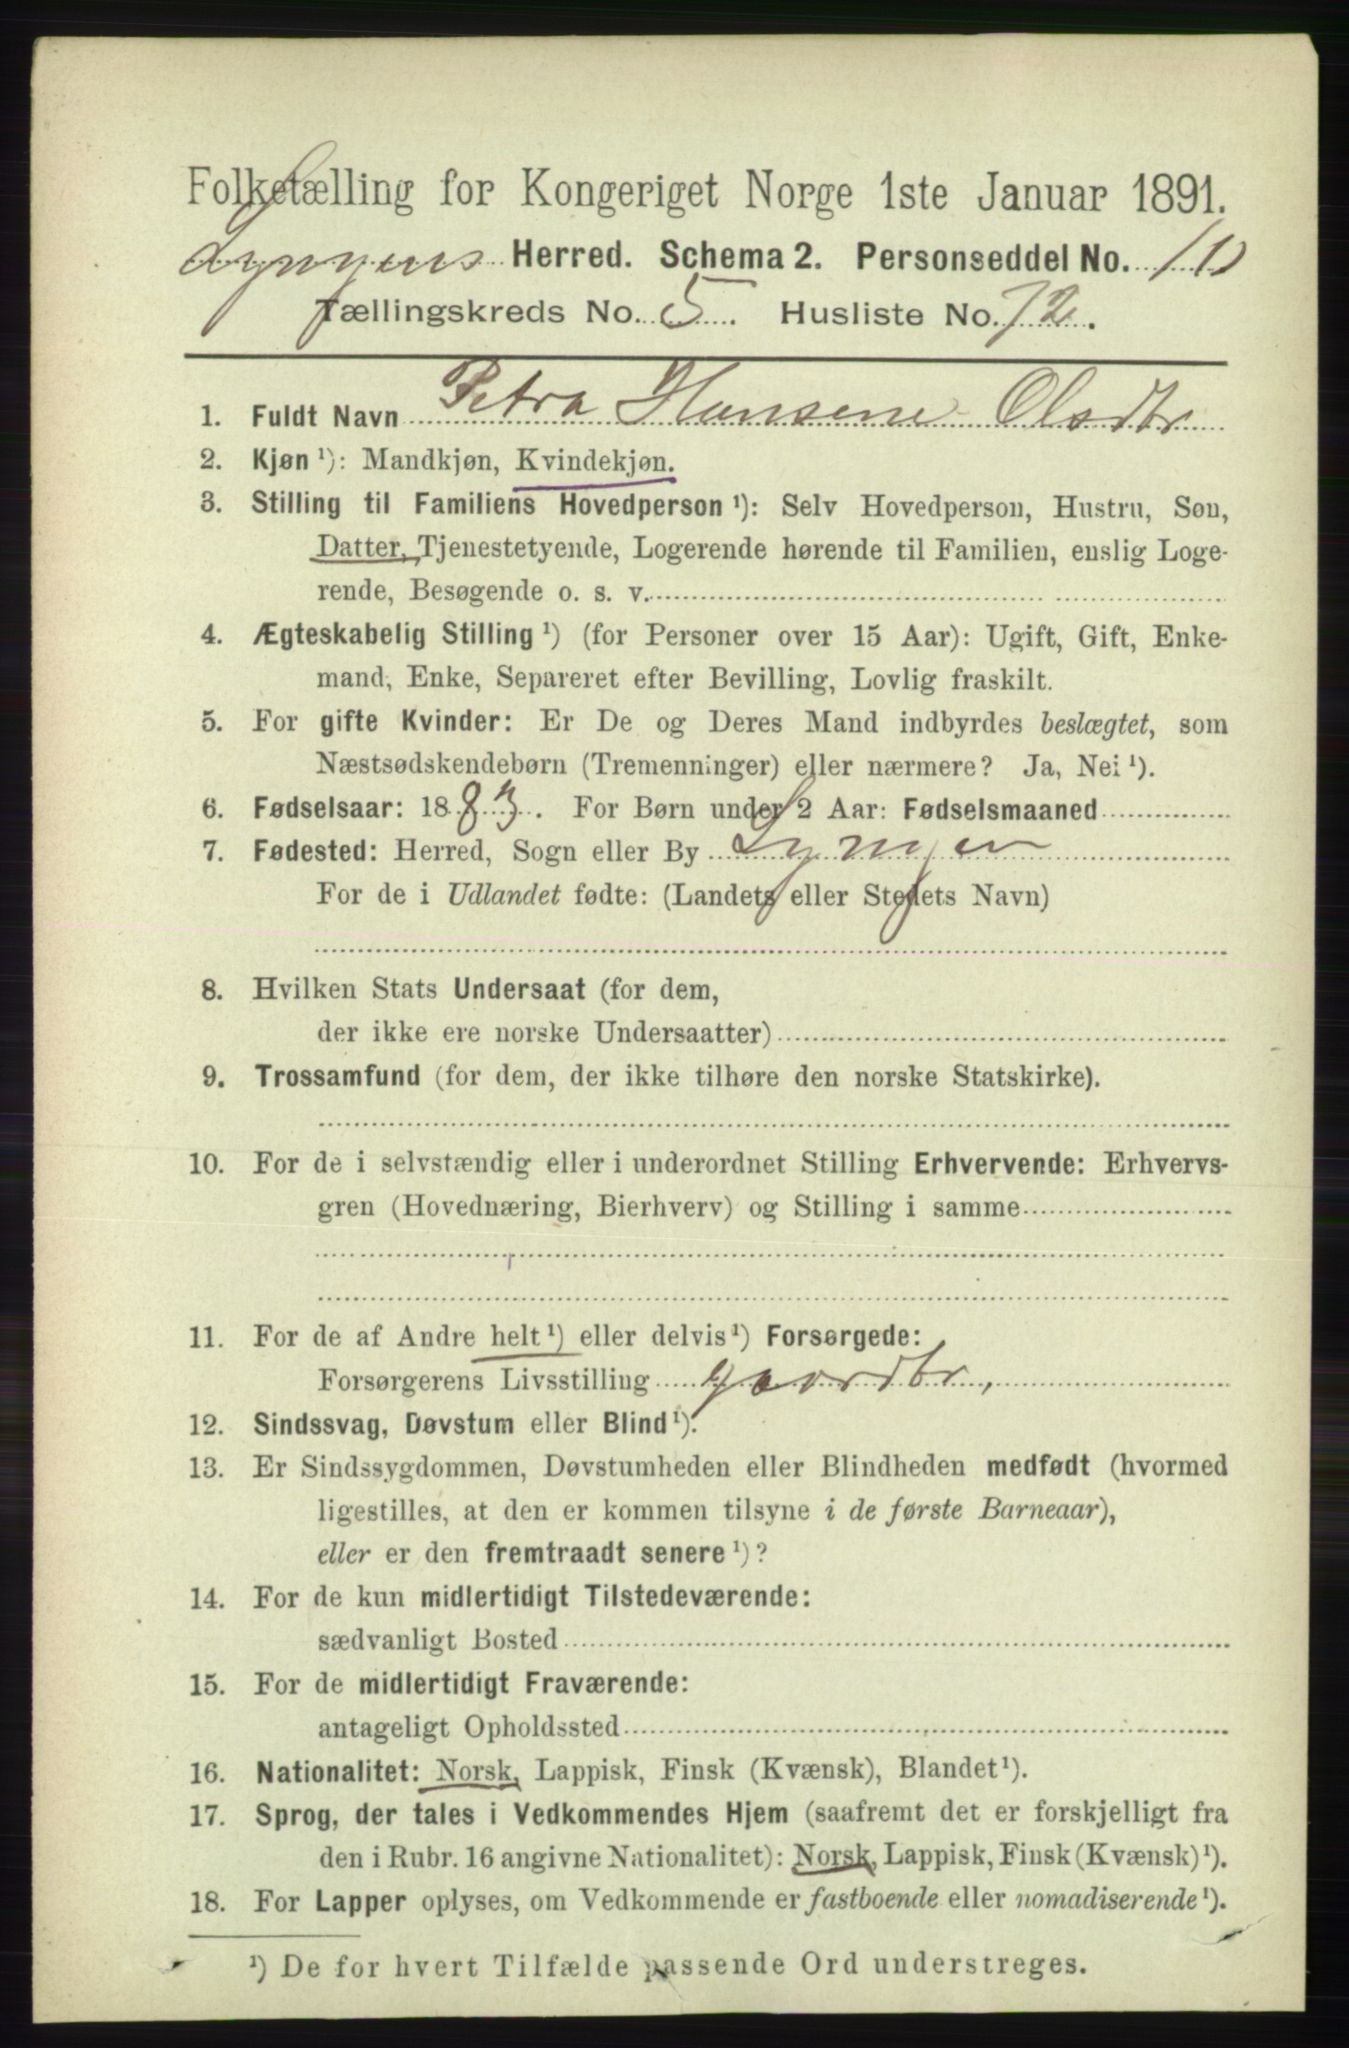 Folketælling for Kongeriget Norge 1ste Januar 1891.
Lyngens Herred. Schema 2. Personseddel No. 10
Tællingskreds No. 5. Husliste No. 72.
1. Fuldt Navn Petra Hansene Olsdtr
2. Kjøn ¹): Mandkjøn, Kvindekjøn.
3. Stilling til Familiens Hovedperson ¹): Selv Hovedperson, Hustru, Søn,
Datter, Tjenestetyende, Logerende hørende til Familien, enslig Loge-
rende, Besøgende o. s. v.
4. Ægteskabelig Stilling ¹) (for Personer over 15 Aar): Ugift, Gift, Enke-
mand, Enke, Separeret efter Bevilling, Lovlig fraskilt.
5. For gifte Kvinder: Er De og Deres Mand indbyrdes beslægtet, som
Næstsødskendebørn (Tremenninger) eller nærmere? Ja, Nei ¹).
6. Fødselsaar: 1883. For Børn under 2 Aar: Fødselsmaaned
7. Fødested: Herred, Sogn eller By Lyngen
For de i Udlandet fødte: (Landets eller Stedets Navn)
8. Hvilken Stats Undersaat (for dem,
der ikke ere norske Undersaatter)
9. Trossamfund (for dem, der ikke tilhøre den norske Statskirke).
10. For de i selvstændig eller i underordnet Stilling Erhvervende: Erhvervs-
gren (Hovednæring, Bierhverv) og Stilling i samme
11. For de af Andre helt ¹) eller delvis ¹) Forsørgede:
Forsørgerens Livsstilling gaardbr,
12. Sindssvag, Døvstum eller Blind ¹).
13. Er Sindssygdommen, Døvstumheden eller Blindheden medfødt (hvormed
ligestilles, at den er kommen tilsyne i de første Barneaar),
eller er den fremtraadt senere ¹)?
14. For de kun midlertidigt Tilstedeværende:
sædvanligt Bosted
15. For de midlertidigt Fraværende:
antageligt Opholdssted
16. Nationalitet: Norsk, Lappisk, Finsk (Kvænsk), Blandet ¹).
17. Sprog, der tales i Vedkommendes Hjem (saafremt det er forskjelligt fra
den i Rubr. 16 angivne Nationalitet): Norsk, Lappisk, Finsk (Kvænsk) ¹).
18. For Lapper oplyses, om Vedkommende er fastboende eller nomadiserende ¹).
¹) De for hvert Tilfælde passende Ord understreges.